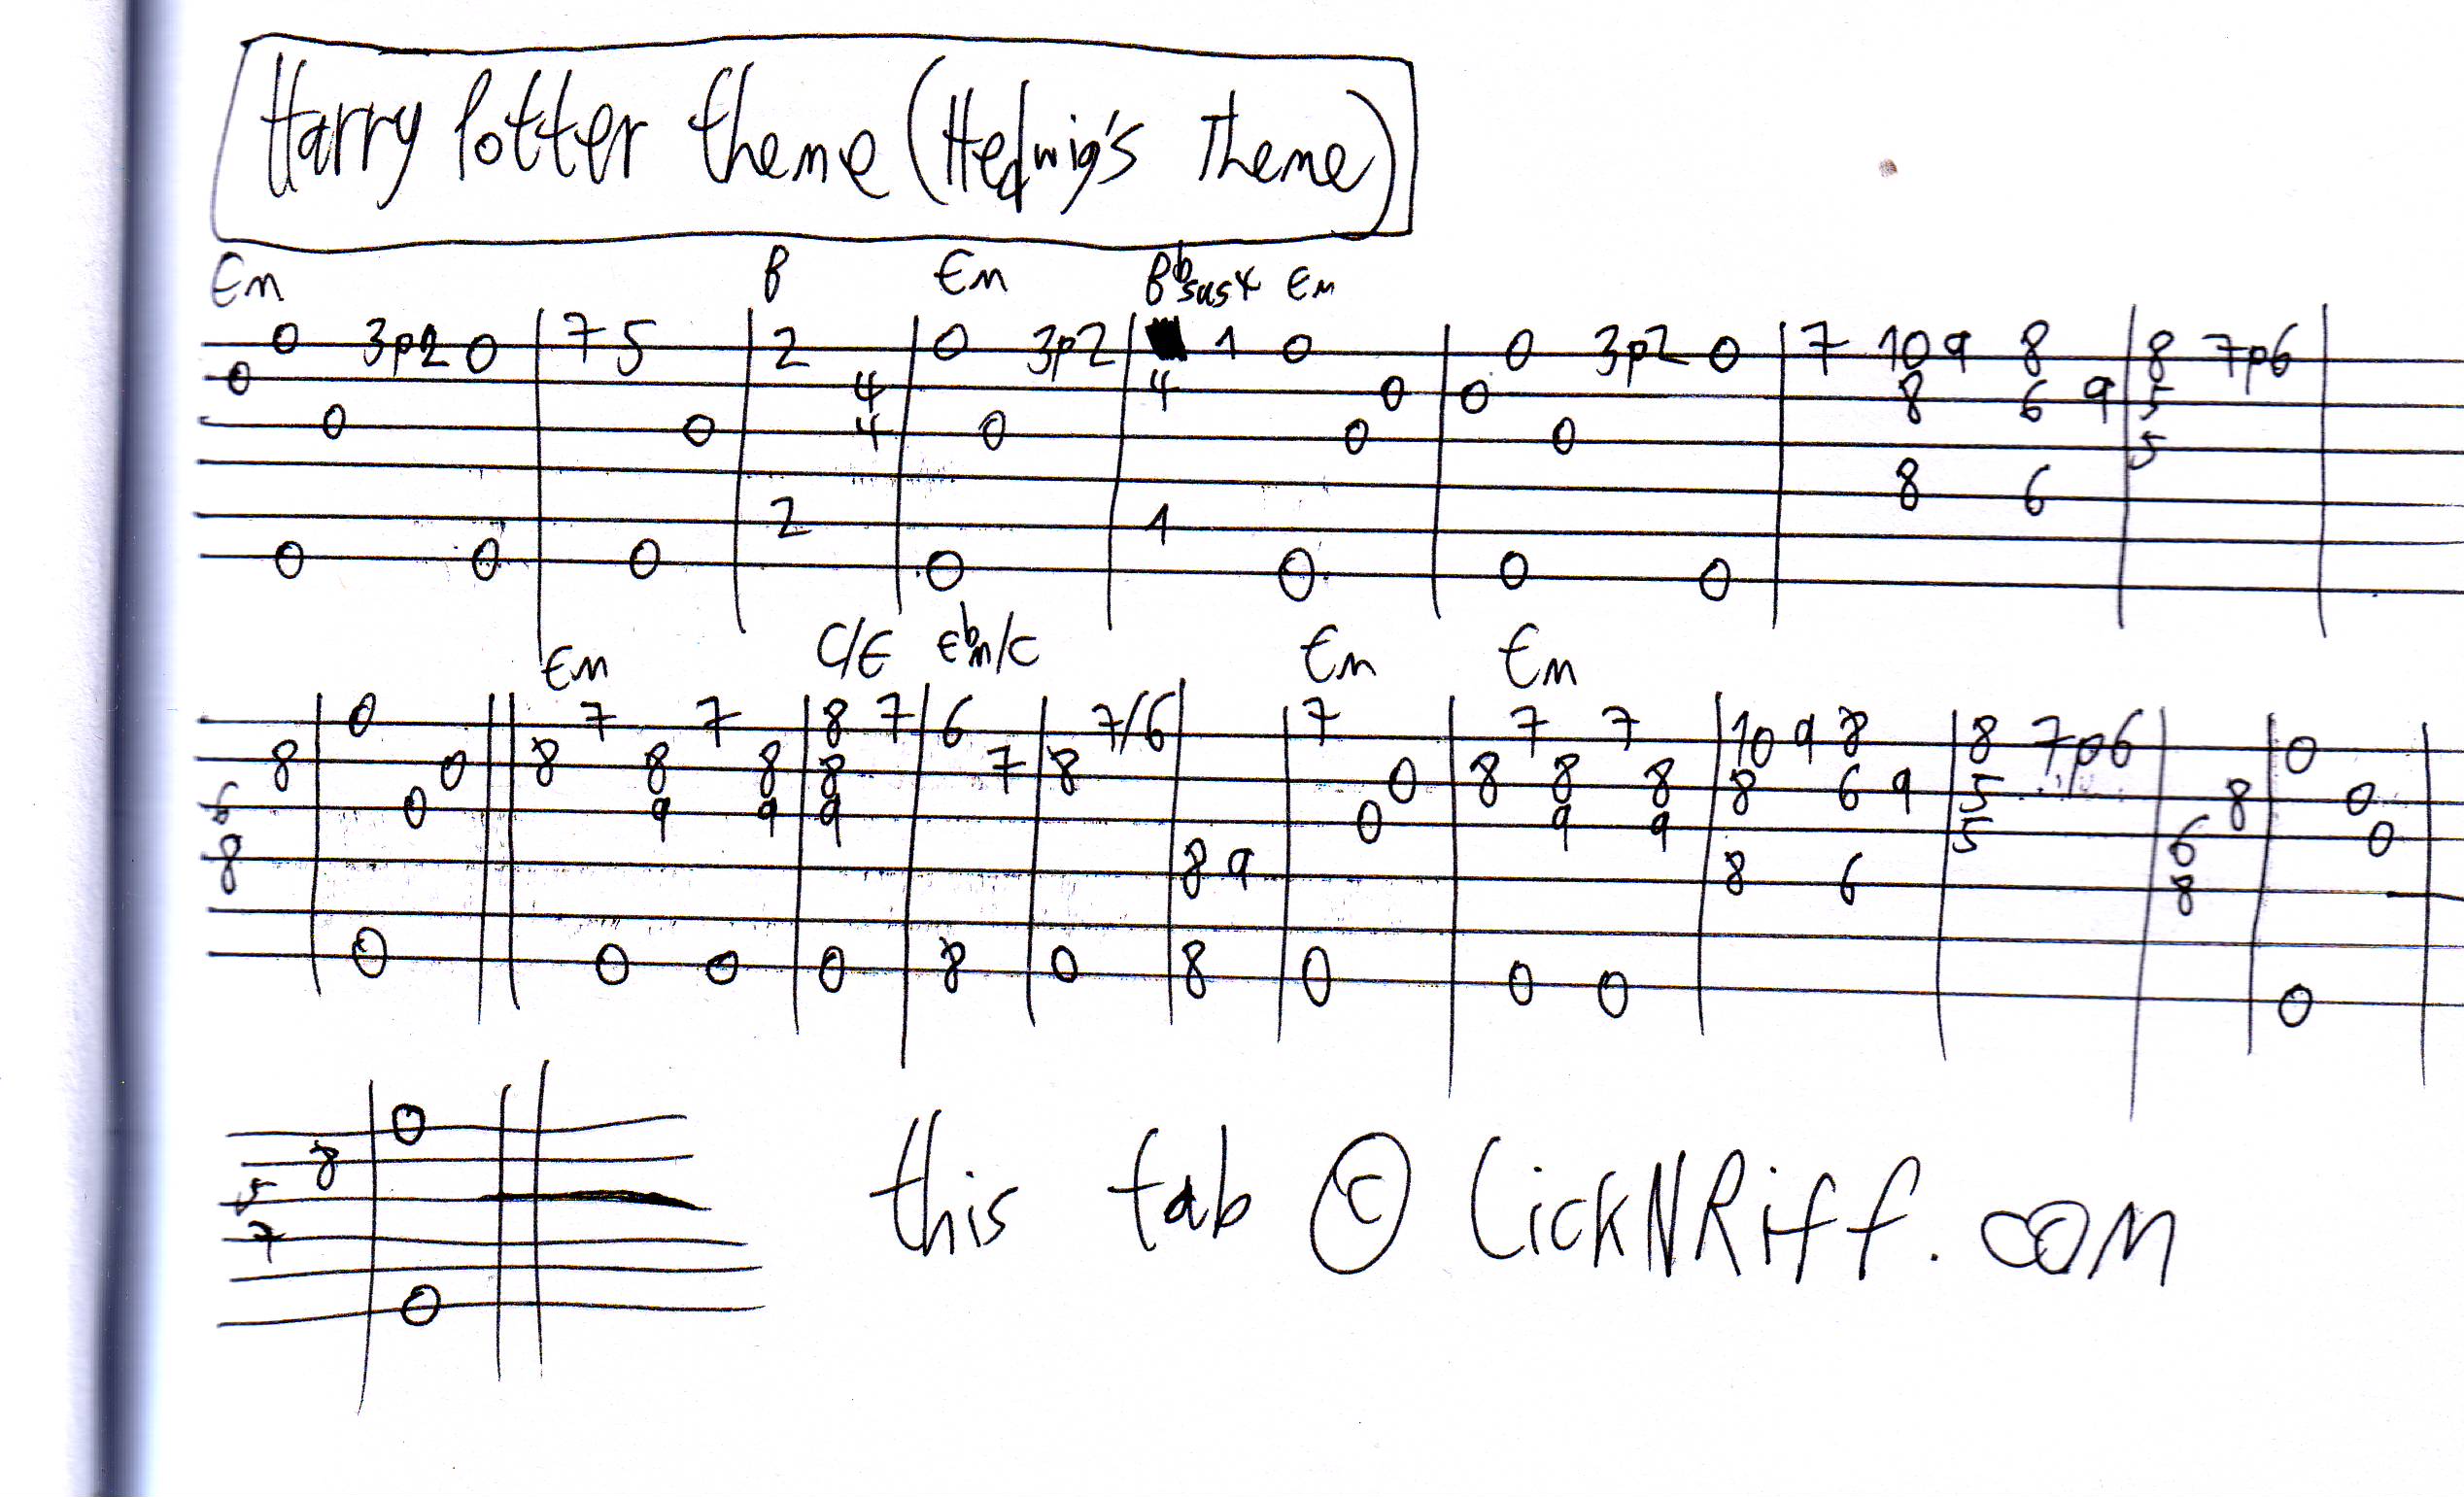 Harry Potter theme (Hedwig's Theme)
Em B Em Bbsus4 Em
0 3p2 0 7 5 2 0 3p2 1 0 0 3p2 0 7 10 9 8 8 7p6
0 4 4 0 0 8 6 9 5
0 0 4 0 0 0 5
8 6
2 1
0 0 0 0 0 0 0
Em C/E Ebm/C Em Em
0 7 7 8 7 6 7/6 7 7 7 10 9 8 8 7p6 0
8 0 8 8 8 8 7 8 0 8 8 8 8 6 9 5 8 0
6 0 9 9 9 0 9 9 5 6 0
8 8 9 8 6 8
0 0 0 0 8 0 8 0 0 0 0
0
8
5
7
0
this tab © LickNRiff.com